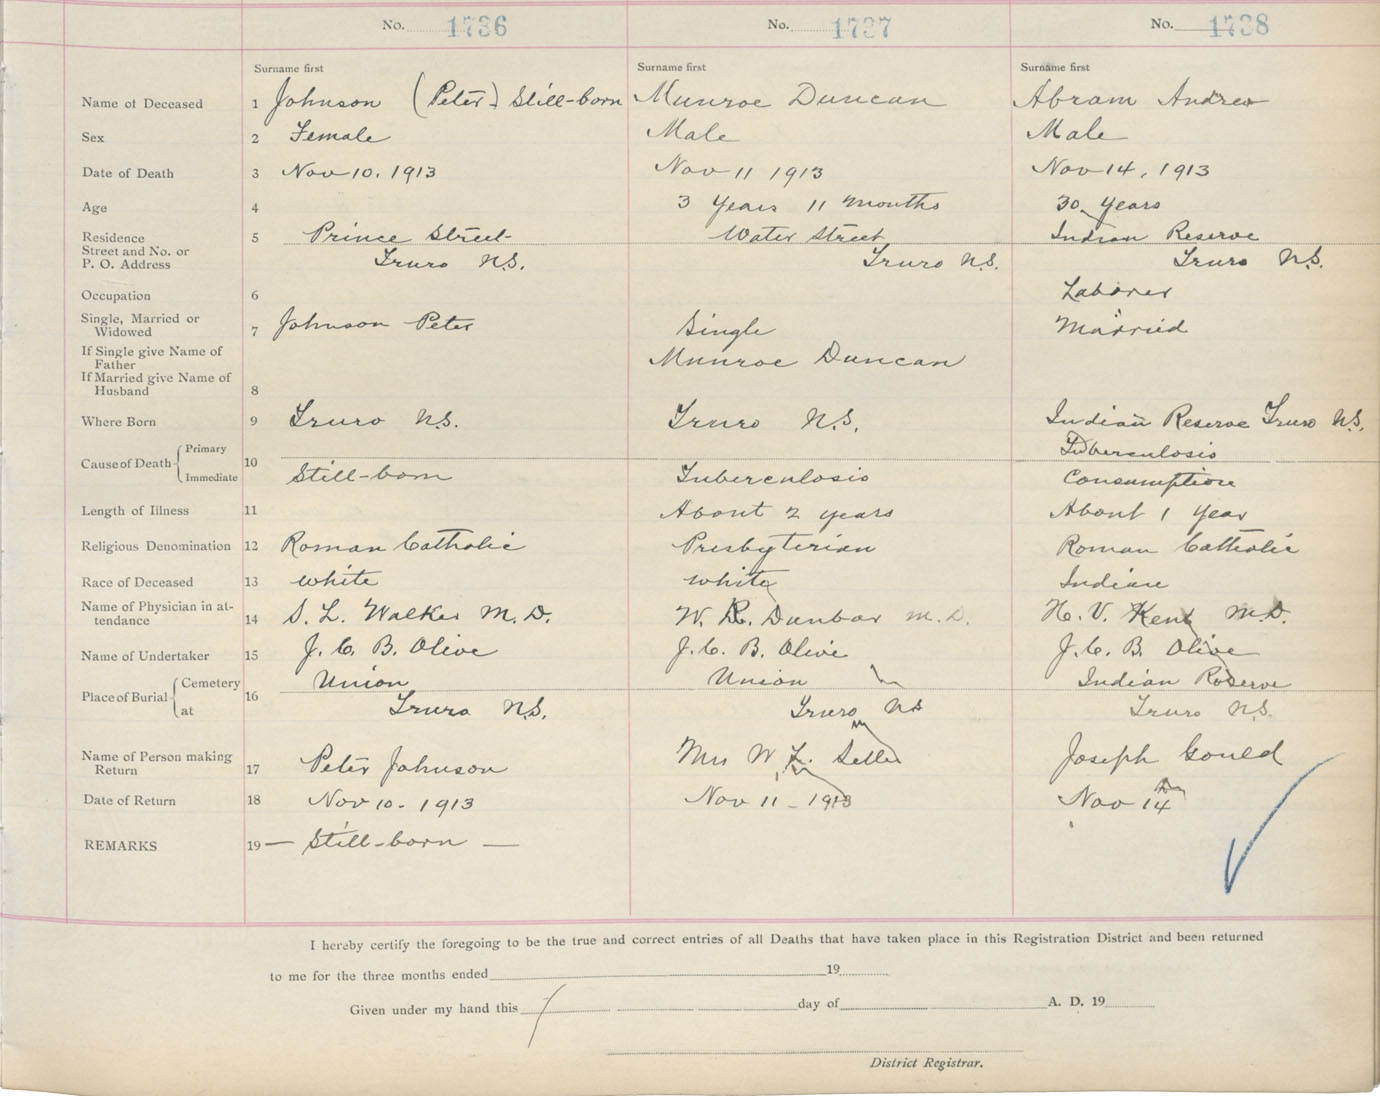 No. 1736 No. 1737 No. 1738
Surname first Surname first Surname first
Name of Deceased 1 Johnson (Peter) Still-born Munroe Duncan Abram Andrew
Sex 2 Female Male Male
Date of Death 3 Nov 10. 1913 Nov 11 1913 Nov 14, 1913
Age 4 3 Years 11 Months 30 Years
Residence 5 Prince Street Water Street Indian Reserve
Street and No. or
P. O. Address Truro N.S. Truro N.S. Truro N.S.
Occupation 6 Laborer
Single, Married or
Widowed 7 Johnson Peter Single Married
If Single give Name of
Father Munroe Duncan
If Married give Name of
Husband 8
Where Born 9 Truro N.S. Truro N.S. Indian Reserve Truro N.S.
Cause of Death Primary 10 Tuberculosis
Immediate Still-born Tuberculosis Consumption
Length of Illness 11 About 2 years About 1 Year
Religious Denomination 12 Roman Catholic Presbyterian Roman Catholic
Race of Deceased 13 White White Indian
Name of Physician in at-
tendance 14 S. L. Walker M.D. W. R. Dunbar M.D. H. V. Kent M.D.
Name of Undertaker 15 J. C. B. Olive J. C. B. Olive J. C. B. Olive
Place of Burial Cemetery 16 Union Union Indian Reserve
at Truro N.S. Truro NS Truro N.S.
Name of Person making
Return 17 Peter Johnson Mrs W. L. Joseph Gould
Date of Return 18 Nov 10. 1913 Nov 11 - 1913 Nov 14
REMARKS 19 — Still-born —
I hereby certify the foregoing to be the true and correct entries of all Deaths that have taken place in this Registration District and been returned
to me for the three months ended 19
Given under my hand this day of A. D. 19
District Registrar.